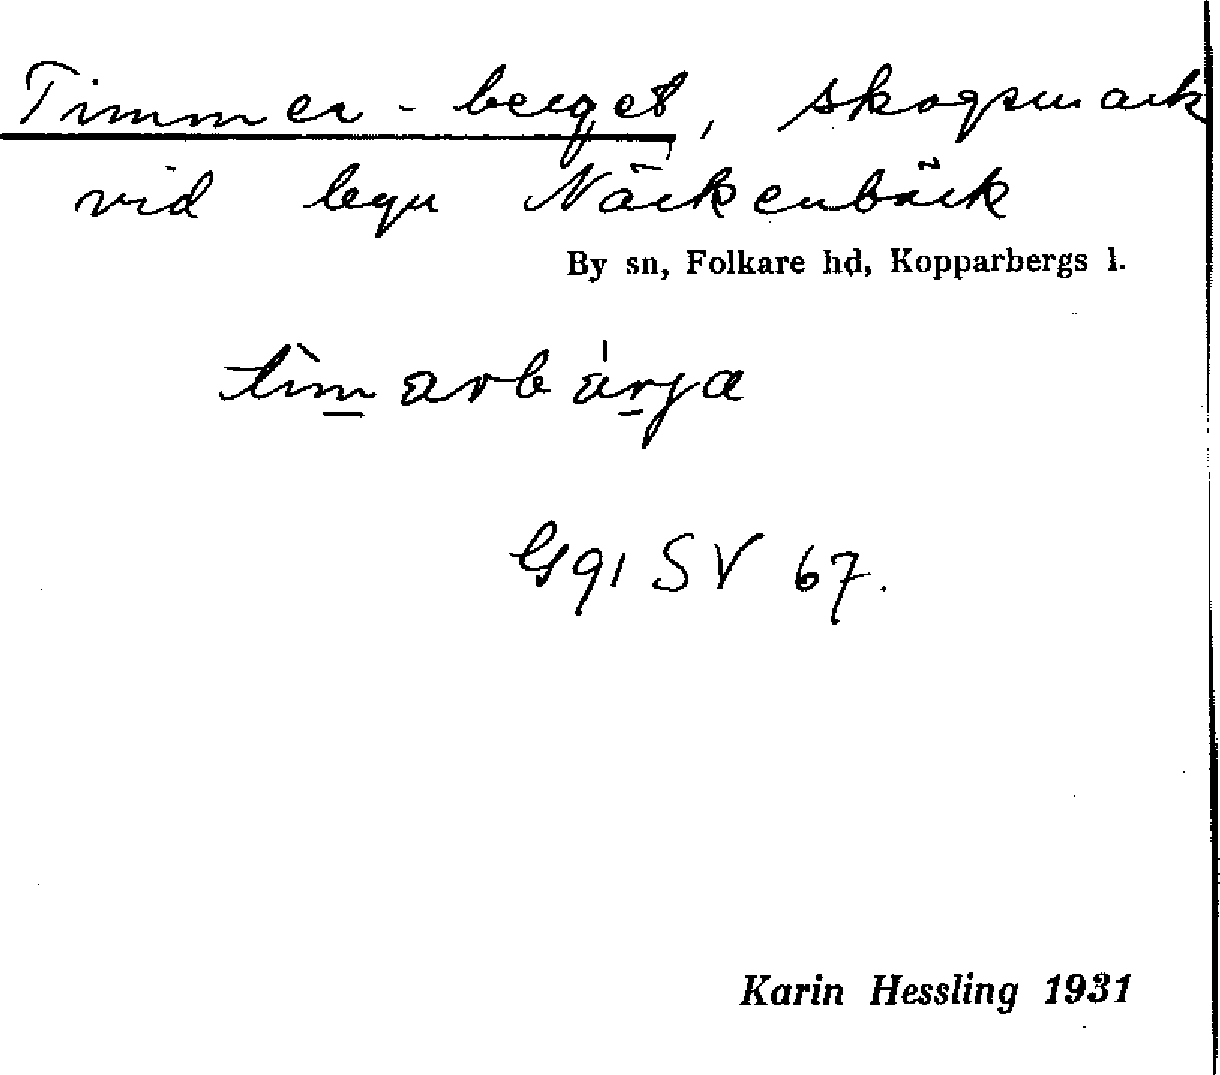 Timmer-berget, skogsmark
vid byn Näckenbäck
By sn, Folkare hd, Kopparbergs l.
tìmarbárja
G91 SV 67.
Karin Hessling 1931